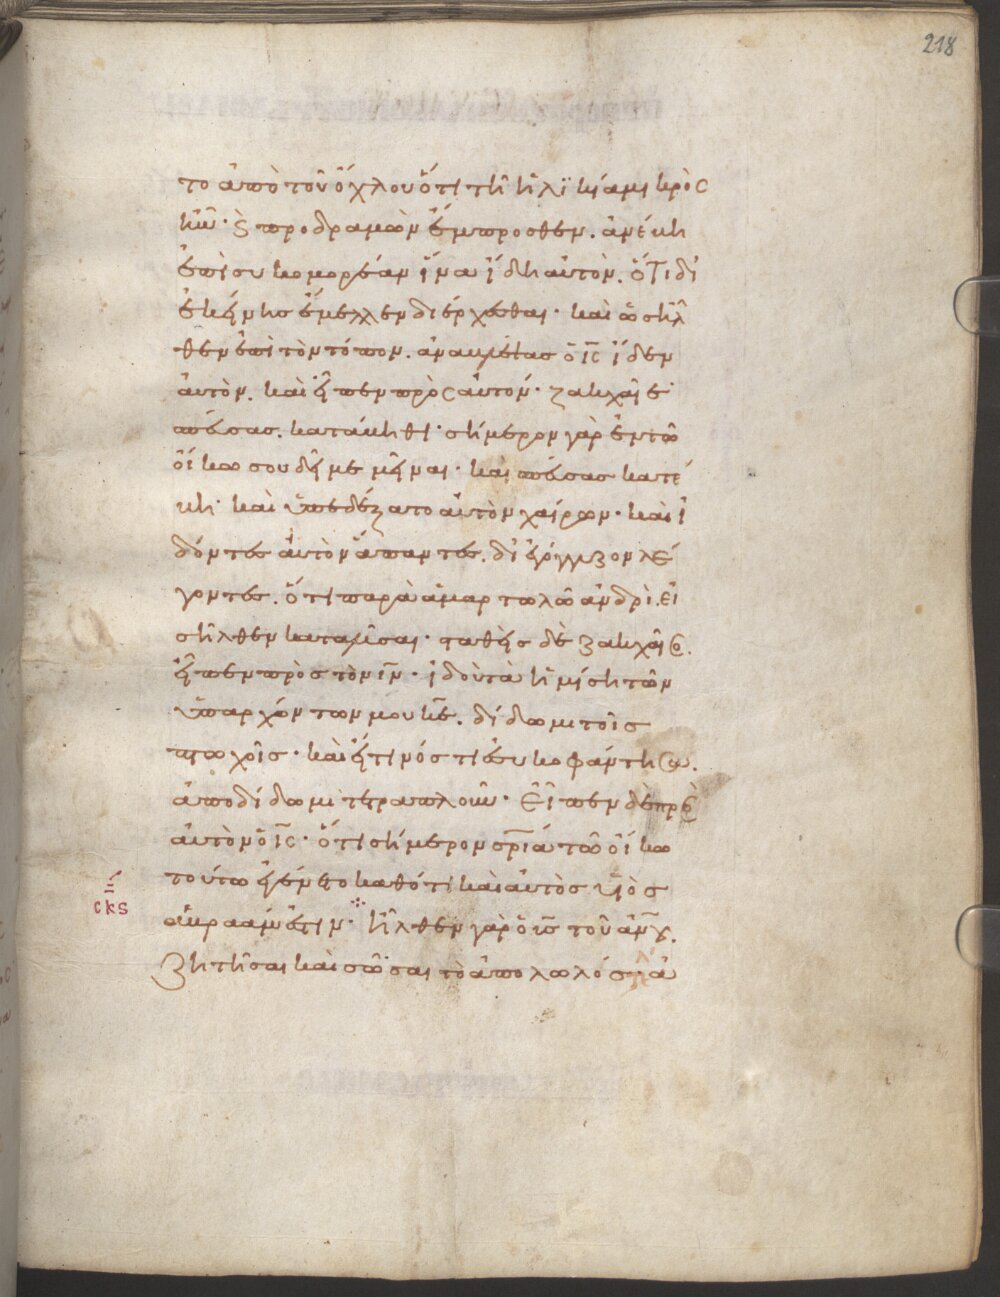 218
το ἀπὸ τοῦ ὄχλου ὅτι τῆ ἡλϊκία μικρὸς
ἦν· καὶ προδραμὼν ἔμπροσθεν. ἀνέβη
ἐπὶ συκομορέαν ἵνα ἴδη αὐτὸν. ὅτι δι
ἐκείνης ἔμελλεν διέρχεσθαι· καὶ ὡς ἦλ
θεν ἐπὶ τὸν τόπον. ἀναβλέψας ὁ ις ἴδεν
αὐτὸν. καὶ εἶπεν πρὸς αὐτόν· ζακχαῖε
σπεύσας. κατάβηθι· σήμερον γὰρ ἐν τῶ
οἴκω σου δεῖ με μεῖναι· καὶ σπεύσας κατέ
βη· καὶ ὑπεδέξατο αὐτὸν χαίρων· καὶ ἰ
δόντες αὐτὸν ἅπαντες. διεγόγγυζον λέ
γοντες. ὅτι παρὰ ἁμαρτωλῶ ἀνδρὶ. εἰ
σῆλθεν καταλῦσαι· σταθεὶς δὲ ζακχαῖος.
εἶπεν πρὸς τὸν ιν· ἰδοὺ τὰ ἡμίση τῶν
ὑπαρχόντων μου κε. δίδωμι τοῖς
πτωχοῖς· καὶ εἴ τινός τι ἐσυκοφάντησα.
ἀποδίδωμι τετραπλοῦν· εἶπεν δὲ πρὸς
αὐτὸν ὁ ις· ὅτι σήμερον σρια τῶ οἴκω
τούτω ἐγένετο καθότι καὶ αὐτὸς υἱὸς
ἀβραάμ ἐστιν· ἦλθεν γὰρ ὁ υς τοῦ ανου.
cκς
ζητῆσαι καὶ σῶσαι τὸ ἀπολωλός